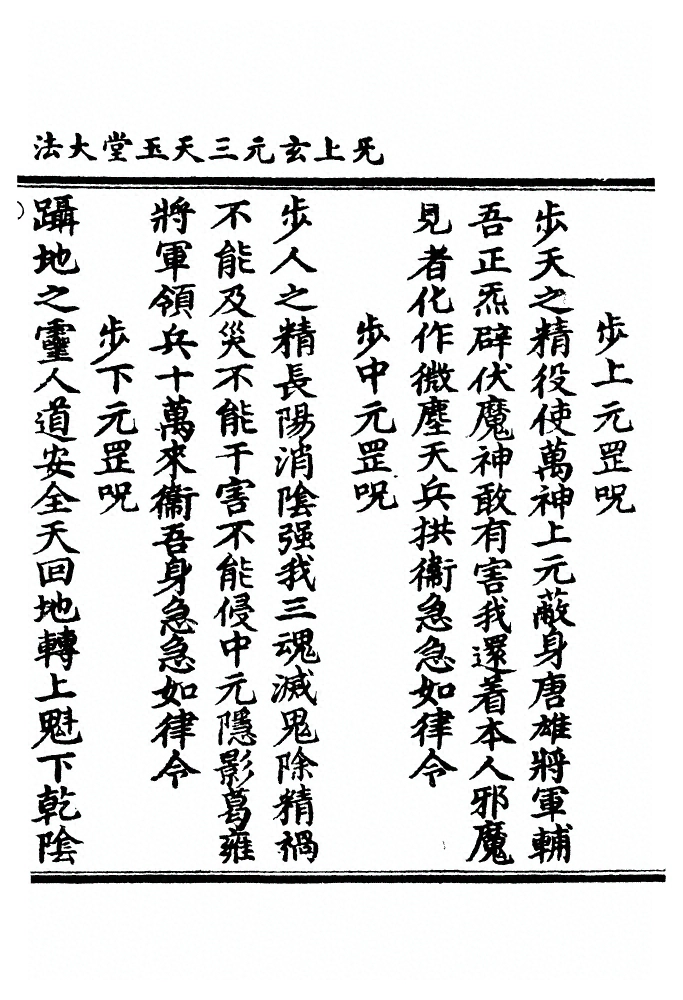 无上玄元三天玉堂大法
步上元罡呪
步天之精役使萬神上元蔽身唐雄將軍輔
吾正炁辟伏魔神敢有害我還着本人邪魔
見者化作微塵天兵拱衞急急如律令
步中元罡呪
步人之精長陽消陰强我三魂滅鬼除精禍
不能及災不能干害不能侵中元隱影葛雍
將軍領兵十萬來衞吾身急急如律令
步下元罡呪
躡地之靈人道安全天回地轉上魁下乾陰